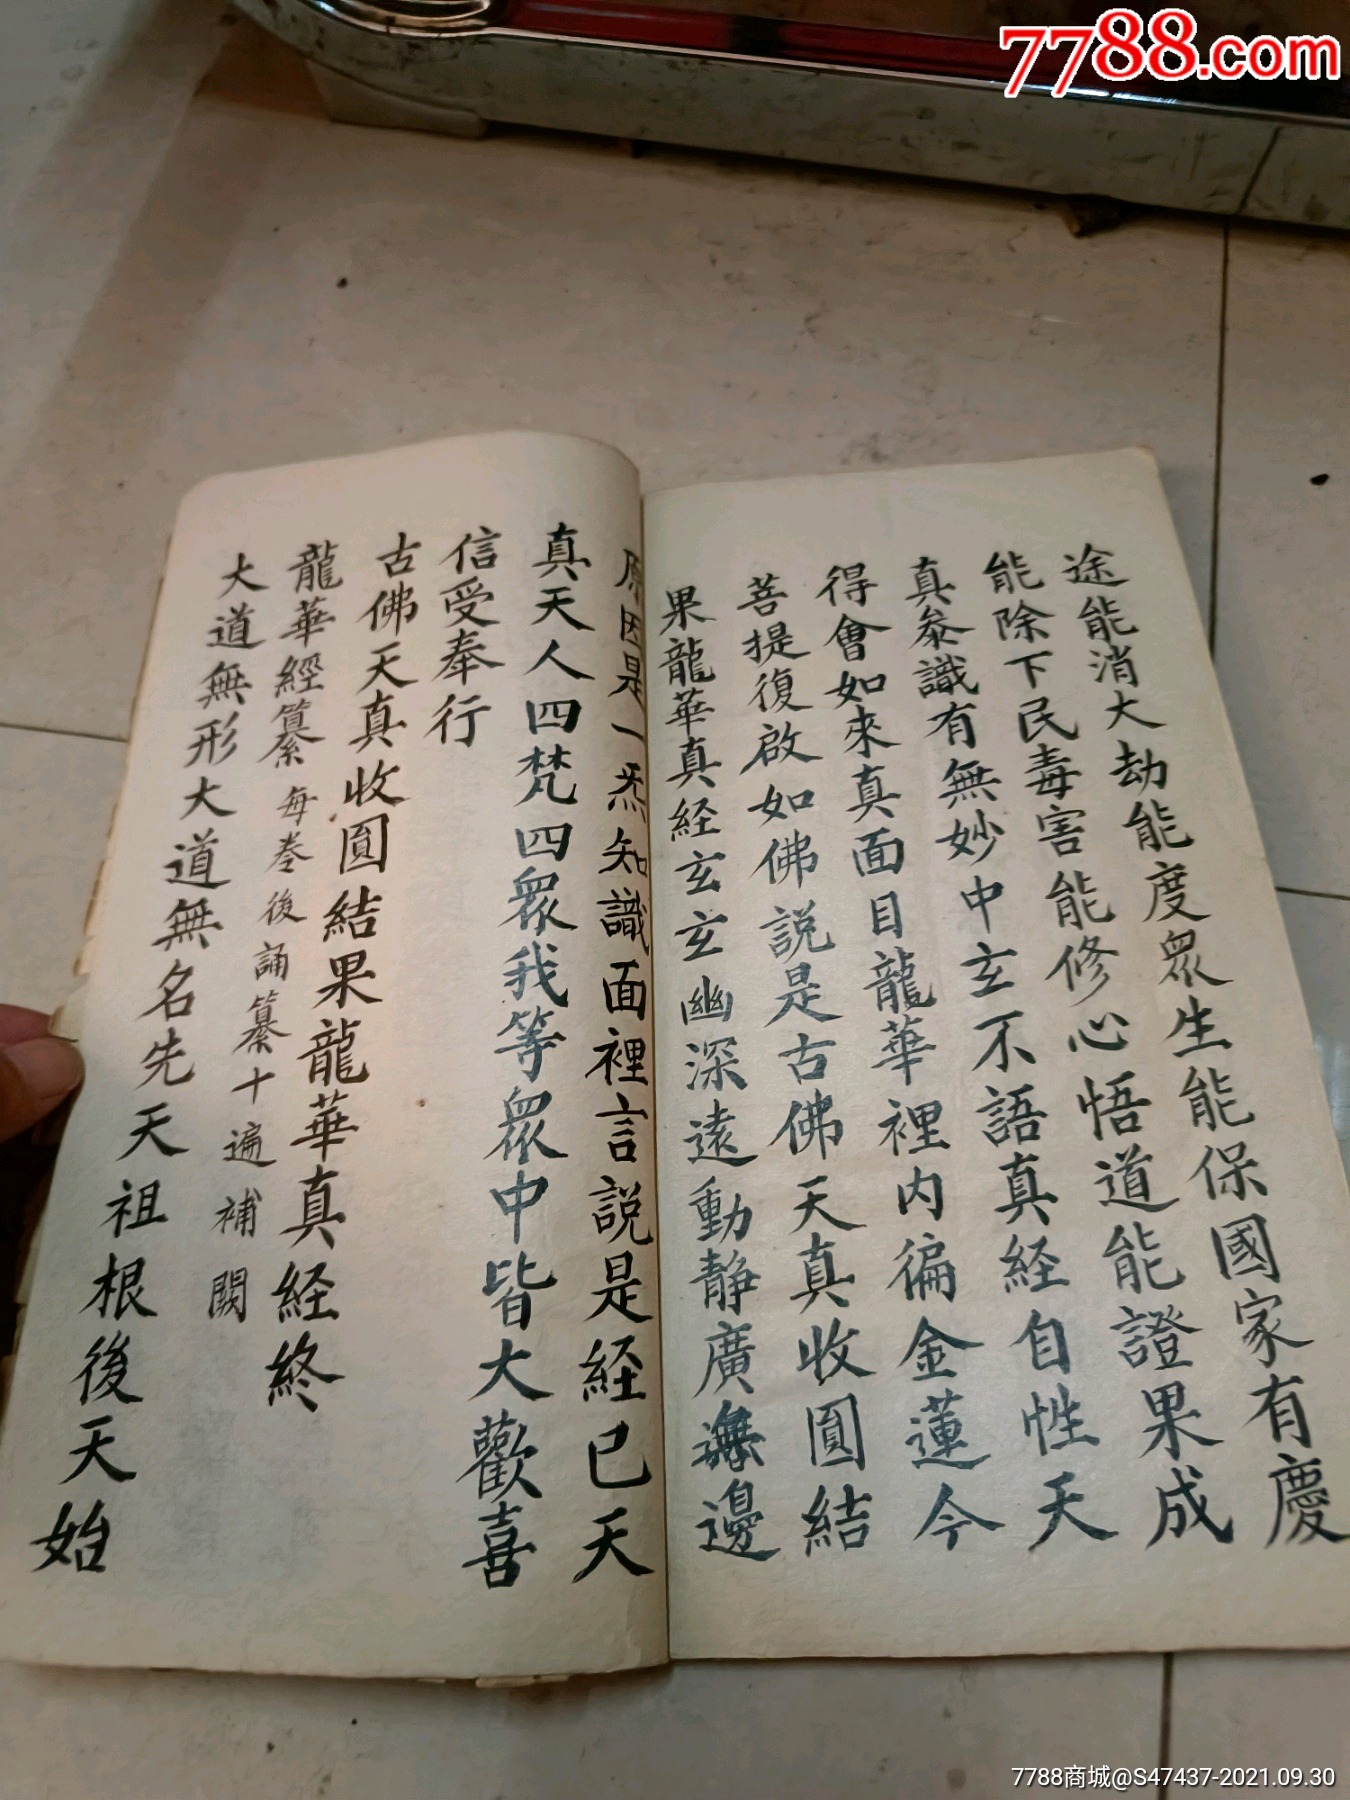 7788.com
途能消大劫能度眾生能保國家有慶
能除下民毒害能修心悟道能證果成
真叅識有無妙中玄不語真経自性天
得會如來真面目龍華裡内徧金蓮今
菩提復啟如佛說是古佛天真收圓結
果龍華真経玄玄幽深遠動静廣無邊
原因是一炁知識面裡言説是経已天
真天人四梵四眾我等眾中皆大歡喜
信受奉行
古佛天真收圓結果龍華真経終
龍華經纂每卷後誦纂十遍補闕
大道無形大道無名先天祖根後天始
7788商城@S47437-2021.09.30